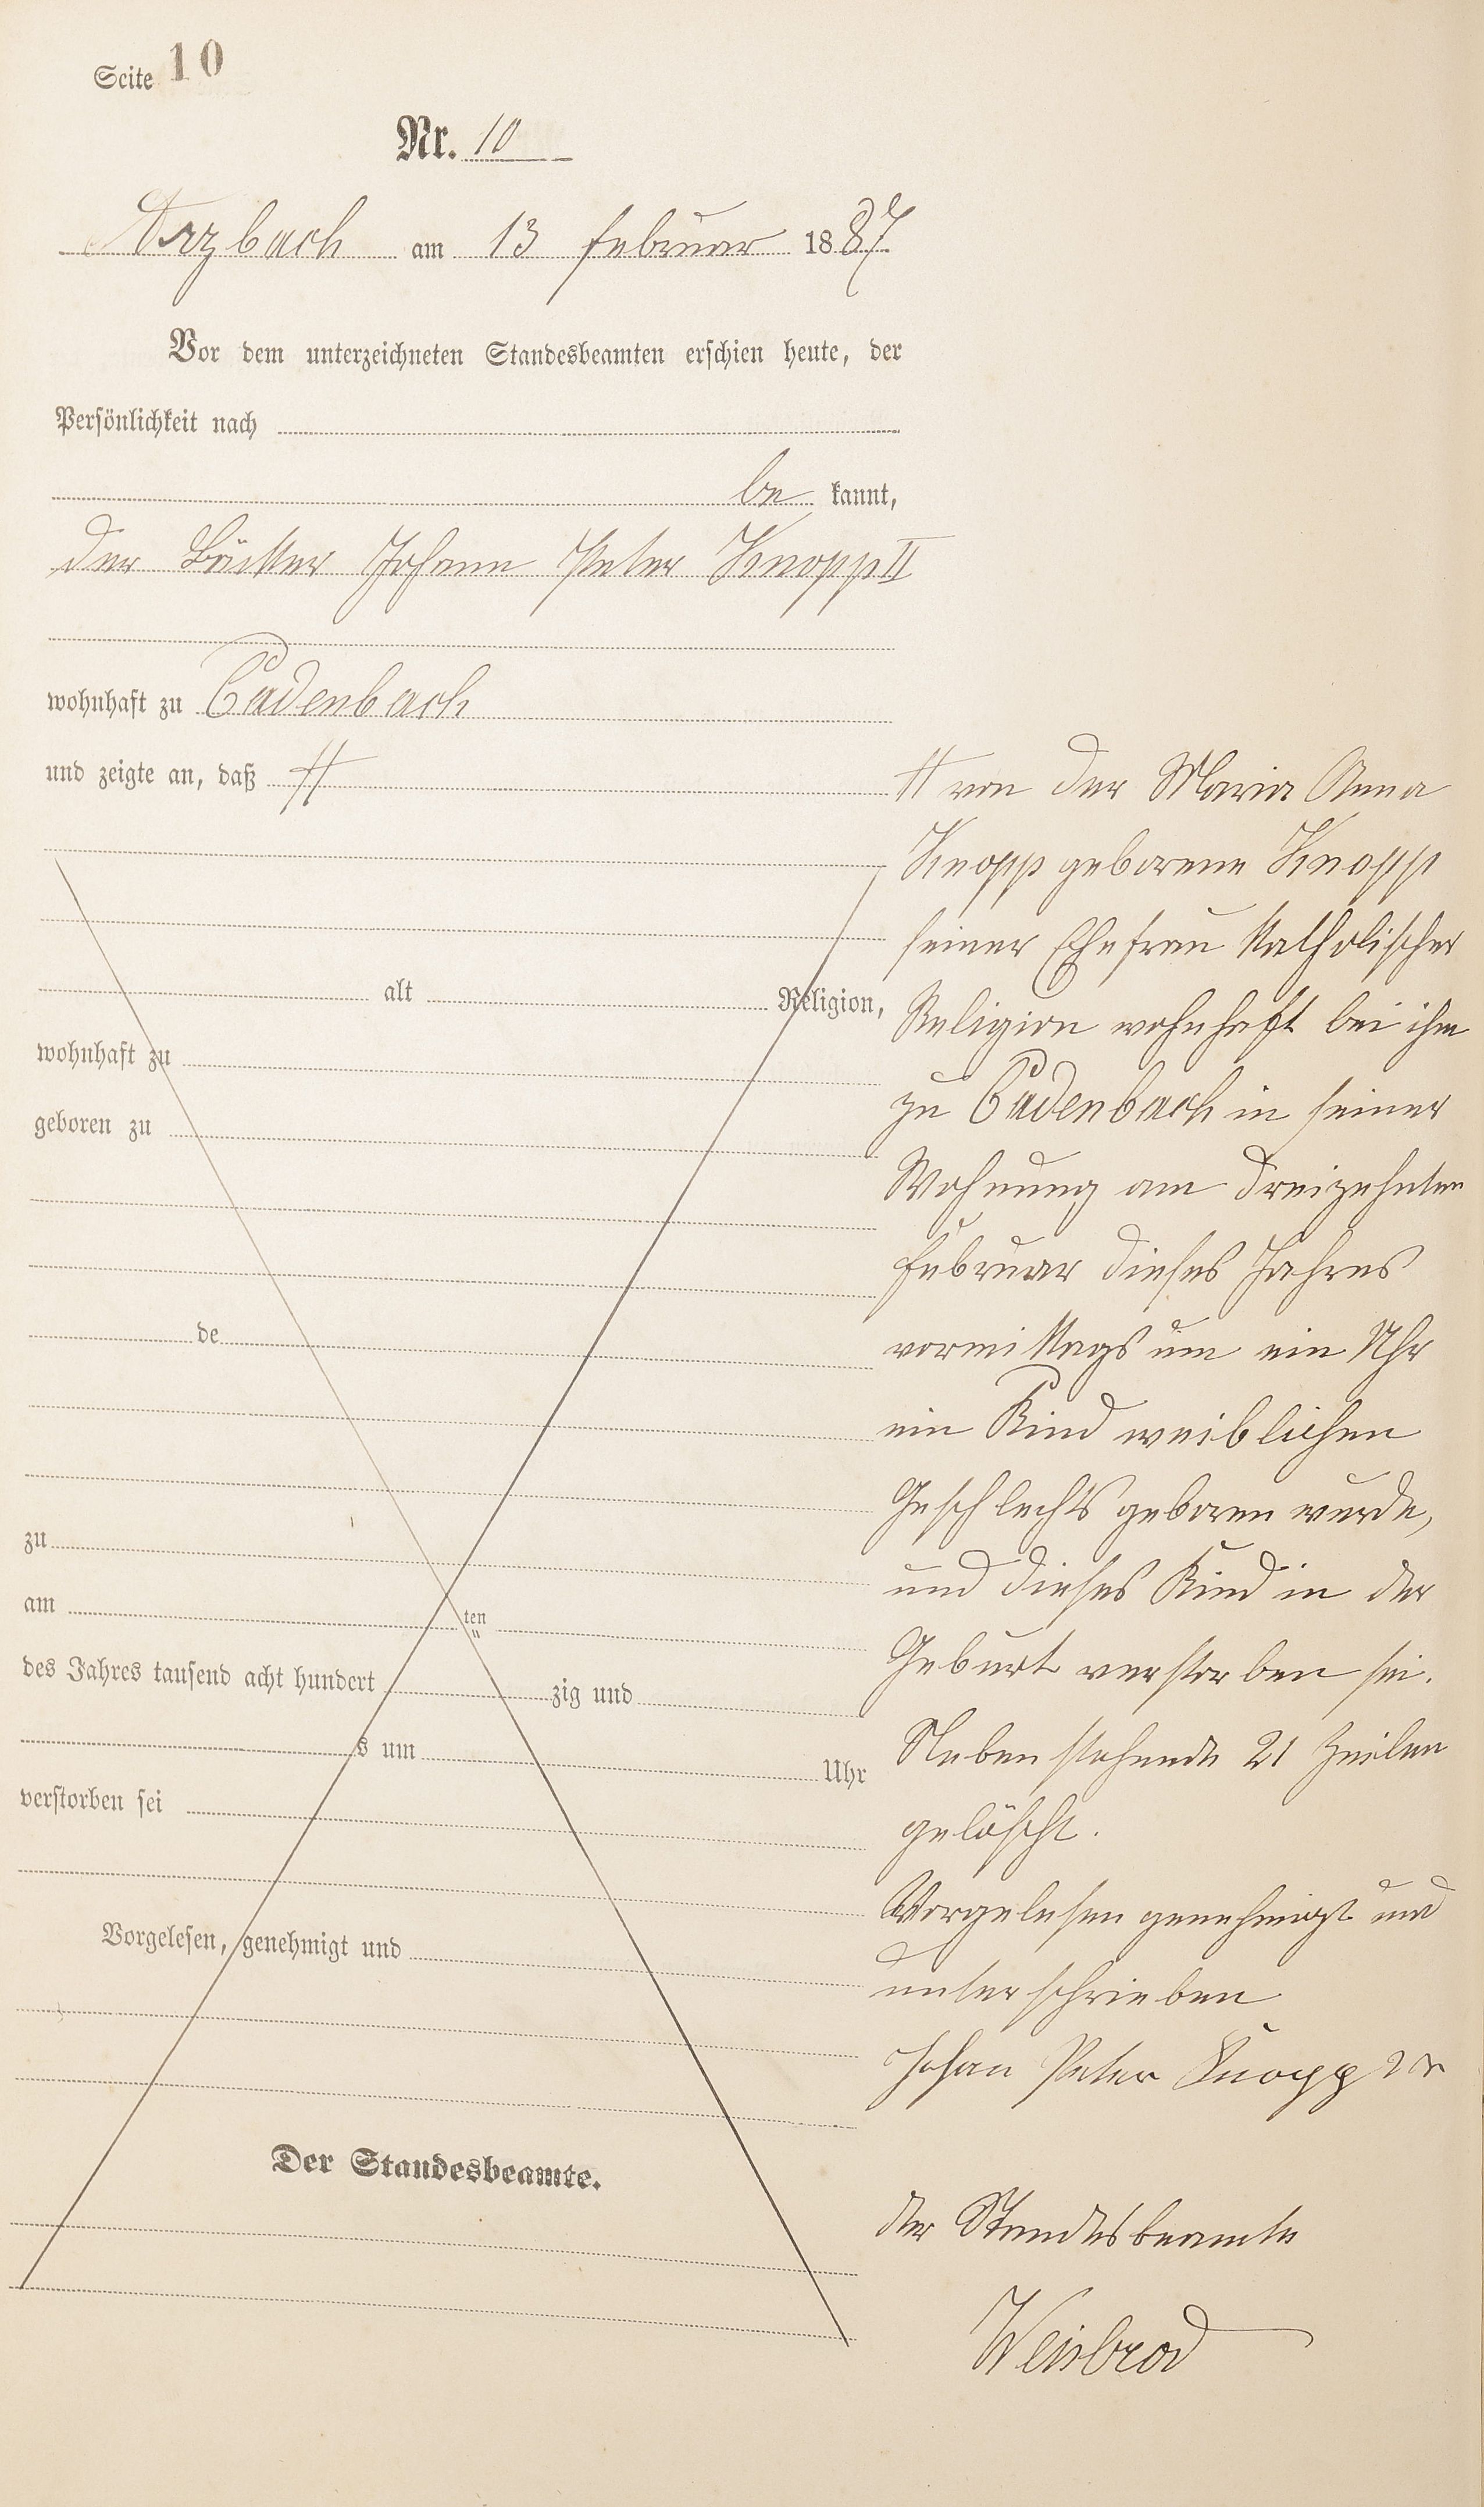 Seite 10
Nr. 10
Arzbach am 13 Februar 1887
Vor dem unterzeichneten Standesbeamten erschien heute, der
Persönlichkeit nach
be kannt,
der Bäcker Johann Peter Knopp II
wohnhaft zu Cadenbach
und zeigte an, daß #
alt Religion,
wohnhaft zu
geboren zu
de
zu
am ten
des Jahres tausend acht hundert zig und
s um Uhr
verstorben sei
Vorgelesen, genehmigt und
Der Standesbeamte.
# von der Maria Anna
Knopp geborene Knopp
seiner Ehefrau Katholischer
Religion wohnhaft bei ihm
zu Cadenbach in seiner
Wohnung am dreizehnten
Februar dieses Jahres
vormittags um ein Uhr
ein Kind weiblichen
Geschlechts geboren wurde,
und dieses Kind in der
Geburt verstorben sei.
Nebenstehende 21 Zeilen
gelöscht.
Vorgelesen genehmigt und
unterschrieben
Johan Peter Knopp 2r
der Standesbeamte
Weisbrod